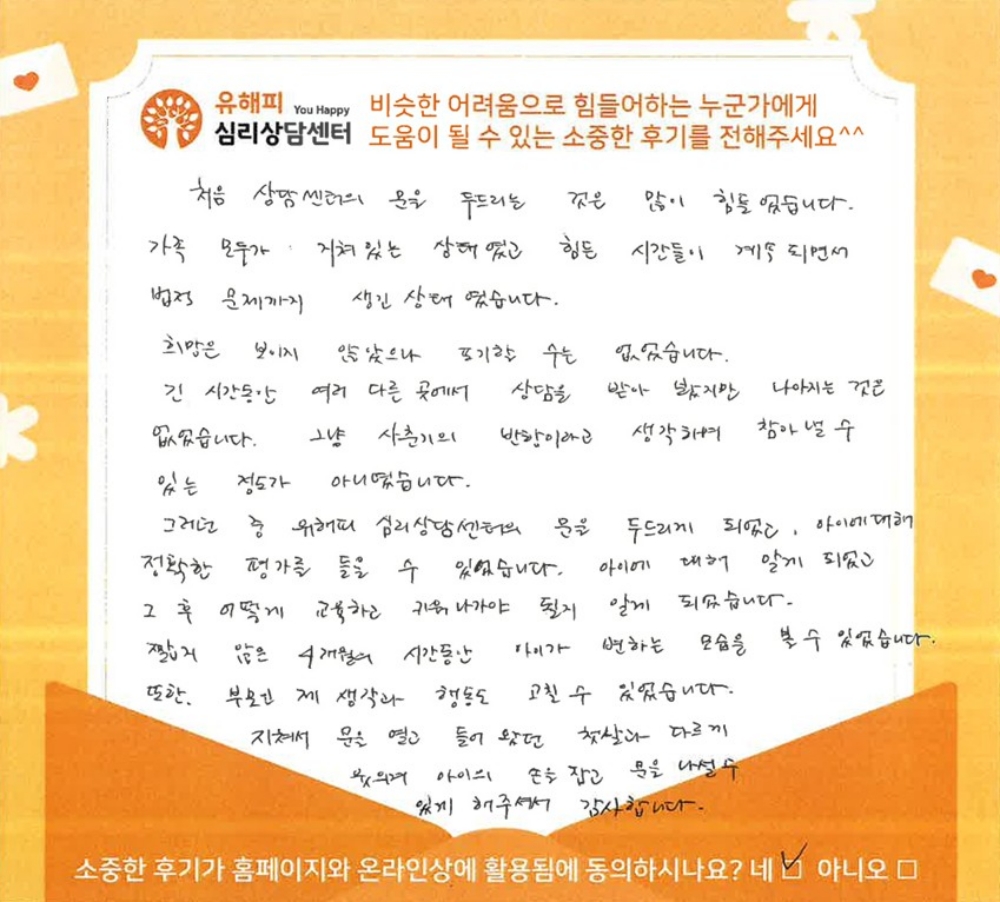 유해피 You Happy
심리상담센터
비슷한 어려움으로 힘들어하는 누군가에게
도움이 될 수 있는 소중한 후기를 전해주세요^^
처음 상담센터의 문을 두드리는 것은 많이 힘들었습니다.
가족 모두가 지쳐있는 상태였고 힘든 시간들이 계속 되면서
법적 문제까지 생긴 상태 였습니다.
희망은 보이지 않았으나 포기할 수는 없었습니다.
긴 시간동안 여러 다른 곳에서 상담을 받아 봤지만 나아지는 것은
없었습니다. 그냥 사춘기의 반항이라고 생각하며 참아낼 수
있는 정도가 아니였습니다.
그러던 중 유해피 심리상담센터의 문을 두드리게 되었고, 아이에대해
정확한 평가를 들을 수 있었습니다. 아이에 대해 알게 되었고
그 후 어떻게 교육하고 키워나가야 될지 알게 되었습니다.
짧지 않은 4개월의 시간동안 아이가 변하는 모습을 볼 수 있었습니다.
또한, 부모인 제 생각과 행동도 고칠 수 있었습니다.
지쳐서 문을 열고 들어 왔던 첫날과 다르게
웃으며 아이의 손을 잡고 문을 나설 수
있게 해주셔서 감사합니다.
소중한 후기가 홈페이지와 온라인상에 활용됨에 동의하시나요? 네 아니오